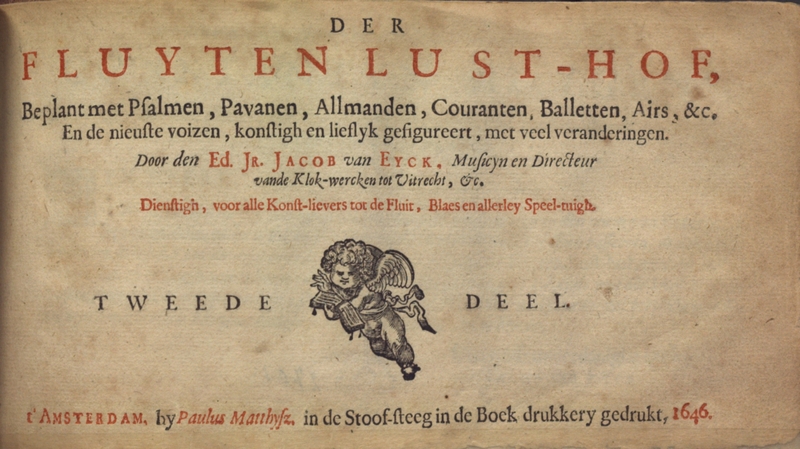 DER
FLUYTEN LUST-HOF,
Beplant met Pſalmen, Pavanen, Allmanden, Couranten, Balletten, Airs, &c.
En de nieuſte voizen, konſtigh en lieflyk gefigureert, met veel veranderingen.
Door den Ed. Jr. JACOB van EYCK, Muſicyn en Directeur
vande Klok-wercken tot Uitrecht, &c.
Dienſtigh, voor alle Konſt-lievers tot de Fluit, Blaes en allerley Speel-tuigh.
TWEEDE DEEL.
t'AMSTERDAM, by Paulus Matthyſz. in de Stoof-ſteeg in de Boek drukkery gedrukt, 1646.